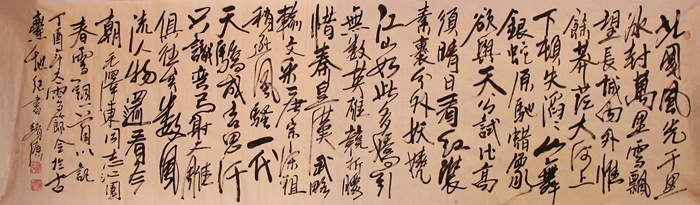 北國風光千里
冰封萬里雪飄
望長城內外惟
餘莽莽大河上
下頓失滔滔山舞
銀蛇原馳蠟象
欲與天公試比高
須晴日看紅裝
素裹分外妖嬈
江山如此多嬌引
無數英雄競折腰
惜秦皇漢武略
輸文采唐宗宋祖
稍遜風騷一代
天驕成吉思汗
只識彎弓射大雕
俱往矣數風
流人物還看今
朝毛澤東同志沁園
春雪詞一首以記
丁酉年大雪節令於古